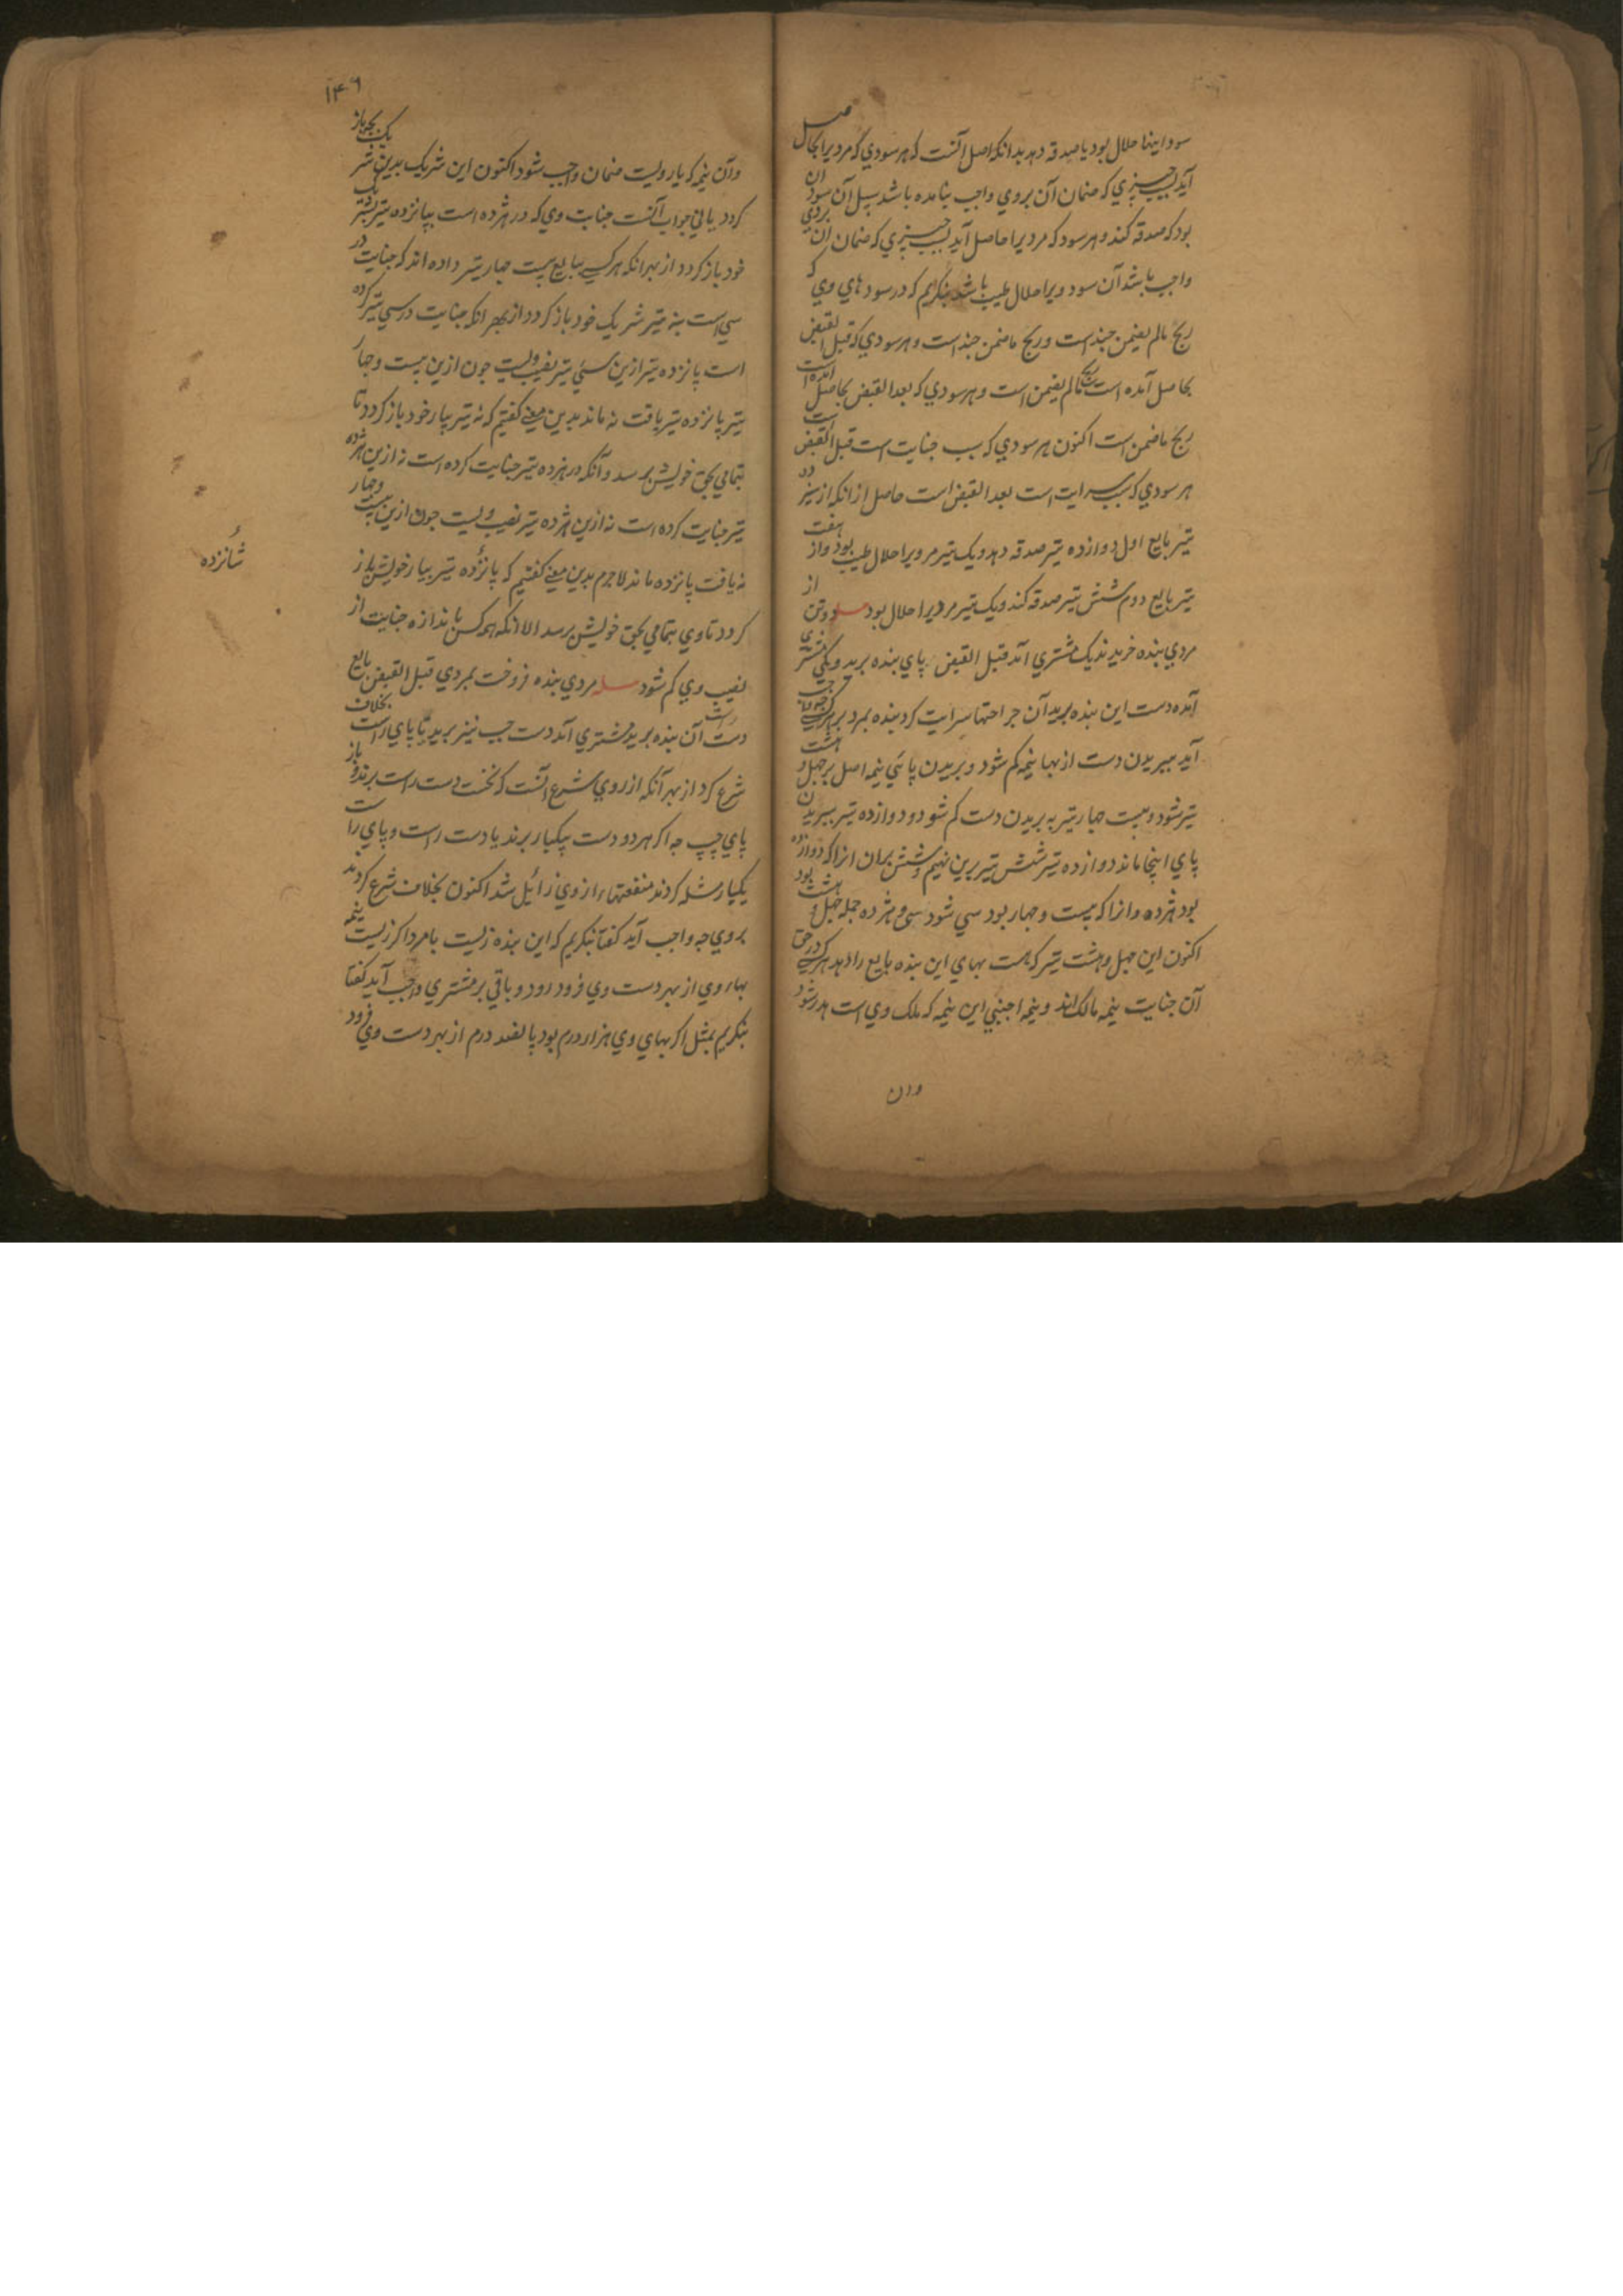 سود اینها حلال بود یا صدقه دهد بدانکه اصل آنست که هر سودي که مرد یرا بحاصل
آید بسبب چیزي که ضمان آن بروي واجب نیامده باشد سبیل آن سود آن
بود که صدقه کند و هر سود که مرد یرا حاصل آید بسبب چیزي که ضمان آن بروي
واجب باشد آن سود ویرا حلال طیب باشد بنکریم که در سود هاي وي که
ربح مالم یضمن چند است و ربح ماضمن چند است و هر سودي که قبل القبض
بحاصل آمده است ربح مالم یضمن است و هر سودي که بعد القبض بحاصل آمده است
ربح ماضمن است اکنون هر سودي که سبب جنایت است قبل القبض است
هر سودي که بسبب سرایت است بعد القبض است حاصل از انکه از سیزده
تیر بایع اول دوازده تیر صدقه دهد و یک تیر مر ویرا حلال طیب بود و از هفت
تیر بایع دوم شش تیر صدقه کند و یک تیر مر ویرا حلال بود مسله دو تن از
مردي بنده خریدند یک مشتري آمد قبل القبض پاي بنده برید و یکي مشتري
آمده دست این بنده برید آن جراحتها سرایت کرد بنده بمرد بر هر کسي چه واجب
آید ببریدن دست از بها نیمه کم شود و بریدن پا سی نیمه اصل بر چهل و هشت
تیر شود و بیست چهار تیر به بریدن دست کم شود و دوازده تیر ببریدن
پاي اینجا ماند دوازده تیر شش تیر برین نهیم و شش بران انرا که دوازده
بود هژده و انرا که بیست و چهار بود سي شود سی و هژده جمله چهل و هشت بود
اکنون این چهل و هشت تیر که هست بهاي این بنده بایع را دهد هر کسي در حق
آن جنایت نیمه مالک اند و نیمه اجنبي این نیمه که ملک وي است هدر شود
وان
۱۴۶
وآن نیمه که یار ویست ضمان واجب شود اکنون این شریک بدین شریک بچه باز
کردد یا ني جواب آنست جنایت وي که در هژده است بپانزده تیر بشریک
خود باز کردد از بهر انکه هر کسي ببایع بیست چهار تیر داده اند که جنایت در
سي است بنه تیر شریک خود باز کردد از بهر انکه جنایت در سي تیر کرده
است پانزده تیر ازین سي تیر نصیب ویست چون ازین بیست و چهار
تیر پانزده تیر یافت نه ماند بدین معني کفتیم که نه تیر بیار خود باز کردد تا
بتمامي بحق خویش برسد و آنکه در هژده تیر جنایت کرده است نه ازین هژده
تیر جنایت کرده است نه ازین هژده تیر نصیب ویست چون ازین بیست و چهار
نه یافت پانزده ماند لاجرم بدین معني کفتیم که پانزده تیر بیار خویش باز
کردد تا وي بتمامي بحق خویش برسد الا انکه هر کس باندازه جنایت از
نصیب وي کم شود مسله مردي بنده فروخت بمردي قبل القبض بایع
دست راست آن بنده برید مشتري آمد دست چپ نیز برید یا پاي راست بخلاف
شرع کرد از بهر آنکه از روي شرع آنست که نخست دست راست برند و باز
پاي چپ چه اکر هر دو دست بیکبار برند یا دست راست و پاي راست
یکبار شله کردند منفعتها از وي زائل شد اکنون بخلاف شرع کردند
بروي چه واجب آید کفتا بنکریم که این بنده زیست یا مرد اکر زیست نیمه
بهاء وي از بهر دست وي فرود رود و باقي بر مشتري واجب آید کفتا
بنکریم بمثل اکر بهاي وي هزار درم بود پانصد درم از بهر دست وي فرود
شانزده